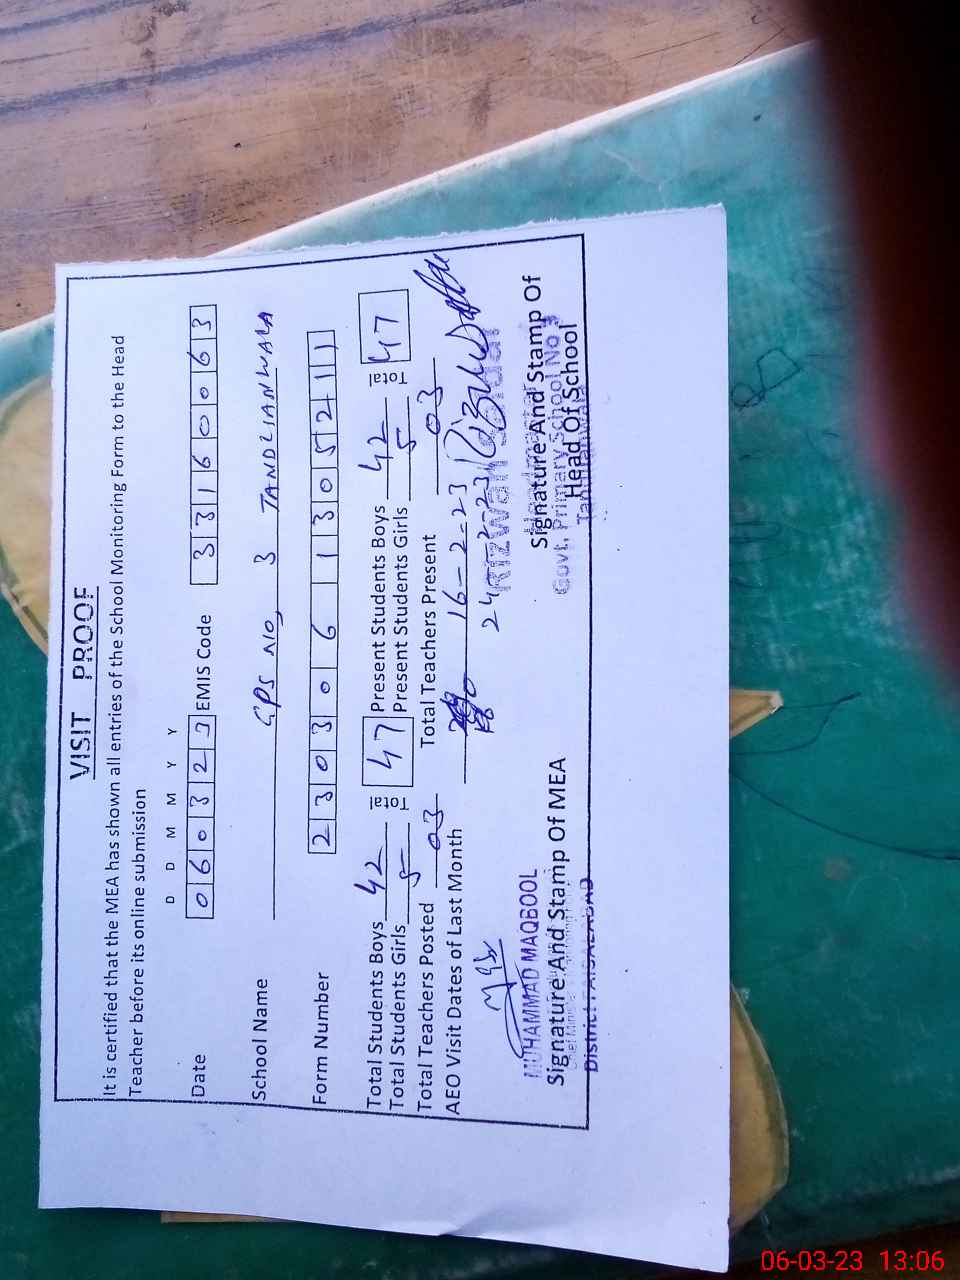 VISIT PROOF
It is certified that the MEA has shown all entries of the School Monitoring Form to the Head
Teacher before its online submission
D D M M Y Y
Date 060323 EMIS Code 33160063
School Name GPS NO, 3 TANDLIANWALA
Form Number 230306 1305211
Total Students Boys 42 Total 47 Present Students Boys 42 Total 47
Total Students Girls 5 Present Students Girls 5
Total Teachers Posted 03 Total Teachers Present 03
AEO Visit Dates of Last Month 16-2-23
24-2-23
MUHAMMAD MAQBOOL
Signature And Stamp Of MEA
District FAISALABAD
Signature And Stamp Of
Head Of School
Headmaster
Govt. Primary School No 3
Tandlianwala
06-03-23 13:06